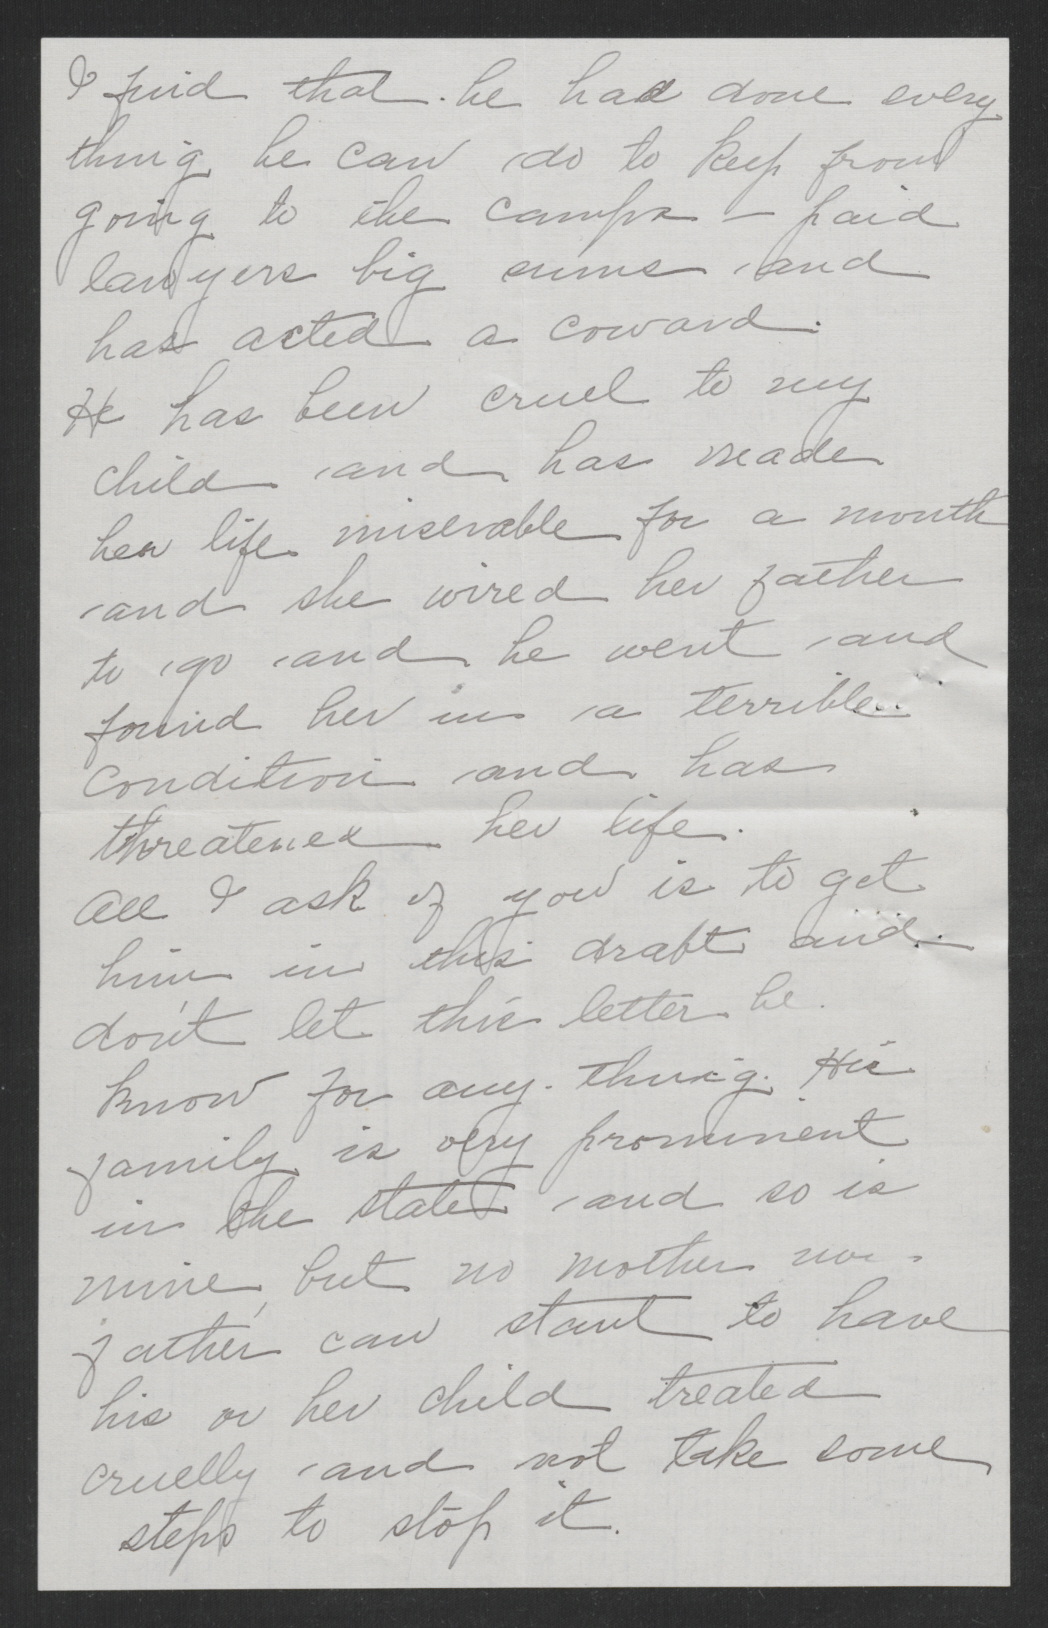 I find that he had done every
thing he can do to keep from
going to the camps - paid
lawyers big sums and
has acted a coward.
He has been cruel to my
child and has made
her life miserable for a month
and she wired her father
to go and he went and
found her in a terrible
condition and has
threatened her life.
All I ask of you is to get
him in this draft and
don't let this letter be
know for any-thing. His
family is very prominent
in the state and so is
mine, but no mother nor
father can stant to have
his or her child treated
cruelly and not take some
steps to stop it.